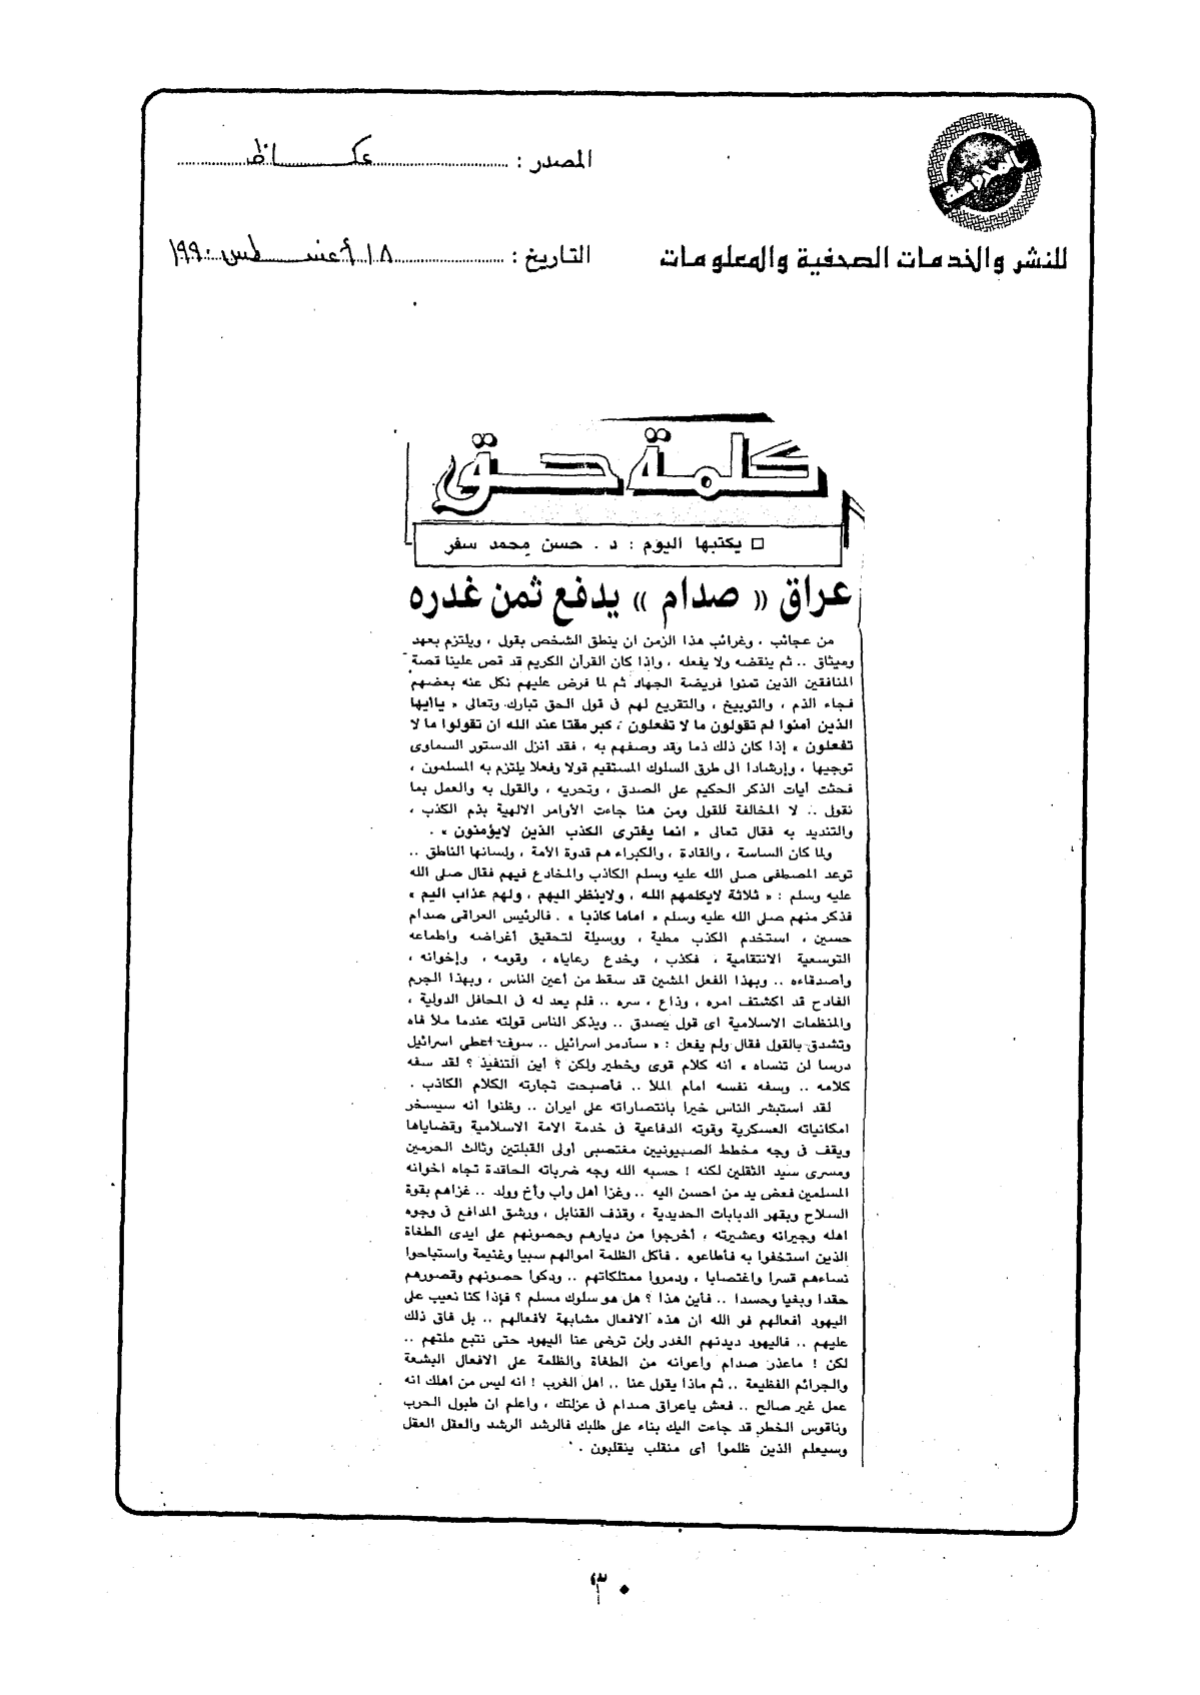 المصدر : عكاظ
للنشر والخدمات الصحفية والمعلومات
التاريخ : ١٨ أغسطس ١٩٩٠
كلمة حق
يكتبها اليوم : د . حسن محمد سفر
عراق « صدام » يدفع ثمن غدره
من عجائب ، وغرائب هذا الزمن ان ينطق الشخص بقول ، ويلتزم بعهد
وميثاق .. ثم ينقضه ولا يفعله ، واذا كان القرآن الكريم قد قص علينا قصة
المنافقين الذين تمنوا فريضة الجهاد ثم لما فرض عليهم نكل عنه بعضهم
فجاء الذم ، والتوبيخ ، والتقريع لهم فى قول الحق تبارك وتعالى « ياأيها
الذين آمنوا لم تقولون ما لا تفعلون ، كبر مقتا عند الله ان تقولوا ما لا
تفعلون » إذا كان ذلك ذما وقد وصفهم به ، فقد أنزل الدستور السماوى
توجيها ، وإرشادا الى طرق السلوك المستقيم قولا وفعلا يلتزم به المسلمون ،
فحثت آيات الذكر الحكيم على الصدق ، وتحريه ، والقول به والعمل بما
نقول .. لا المخالفة للقول ومن هنا جاءت الأوامر الالهية بذم الكذب ،
والتنديد به فقال تعالى « انما يفترى الكذب الذين لايؤمنون » .
ولما كان الساسة ، والقادة ، والكبراء هم قدوة الأمة ، ولسانها الناطق ..
توعد المصطفى صلى الله عليه وسلم الكاذب والمخادع فيهم فقال صلى الله
عليه وسلم : « ثلاثة لايكلمهم الله ، ولاينظر اليهم ، ولهم عذاب اليم »
فذكر منهم صلى الله عليه وسلم « اماما كاذبا » . فالرئيس العراقى صدام
حسين ، استخدم الكذب مطية ، ووسيلة لتحقيق أغراضه واطماعه
التوسعية الانتقامية ، فكذب ، وخدع رعاياه ، وقومه ، وإخوانه ،
وأصدقاءه .. وبهذا الفعل المشين قد سقط من أعين الناس ، وبهذا الجرم
الفادح قد اكتشف امره ، وذاع ، سره .. فلم يعد له فى المحافل الدولية ،
والمنظمات الاسلامية اى قول يصدق .. ويذكر الناس قولته عندما ملأ فاه
وتشدق بالقول فقال ولم يفعل : « سأدمر اسرائيل .. سوف اعطى اسرائيل
درسا لن تنساه » أنه كلام قوى وخطير ولكن ؟ أين التنفيذ ؟ لقد سفه
كلامه .. وسفه نفسه امام الملأ .. فأصبحت تجارته الكلام الكاذب .
لقد استبشر الناس خيرا بانتصاراته على ايران .. وظنوا أنه سيسخر
امكانياته العسكرية وقوته الدفاعية فى خدمة الامة الاسلامية وقضاياها
ويقف فى وجه مخطط الصهيونيين مغتصبى أولى القبلتين وثالث الحرمين
ومسرى سيد الثقلين لكنه ! حسبه الله وجه ضرباته الحاقدة تجاه اخوانه
المسلمين فعض يد من احسن اليه .. وغزا أهل وأب وأخ وولد .. غزاهم بقوة
السلاح وبقهر الدبابات الحديدية ، وقذف القنابل ، ورشق المدافع فى وجوه
اهله وجيرانه وعشيرته ، أخرجوا من ديارهم وحصونهم على ايدى الطغاة
الذين استخفوا به فأطاعوه . فأكل الظلمة اموالهم سبيا وغنيمة واستباحوا
نساءهم قسرا واغتصابا ، ودمروا ممتلكاتهم .. ودكوا حصونهم وقصورهم
حقدا وبغيا وحسدا .. فأين هذا ؟ هل هو سلوك مسلم ؟ فإذا كنا نعيب على
اليهود أفعالهم فو الله ان هذه الافعال مشابهة لأفعالهم .. بل فاق ذلك
عليهم .. فاليهود ديدنهم الغدر ولن ترضى عنا اليهود حتى نتبع ملتهم ..
لكن ! ماعذر صدام وأعوانه من الطغاة والظلمة على الافعال البشعة
والجرائم الفظيعة .. ثم ماذا يقول عنا .. اهل الغرب ! انه ليس من اهلك انه
عمل غير صالح .. فعش ياعراق صدام فى عزلتك ، واعلم ان طبول الحرب
وناقوس الخطر قد جاءت اليك بناء على طلبك فالرشد الرشد والعقل العقل
وسيعلم الذين ظلموا أى منقلب ينقلبون .
٣٠